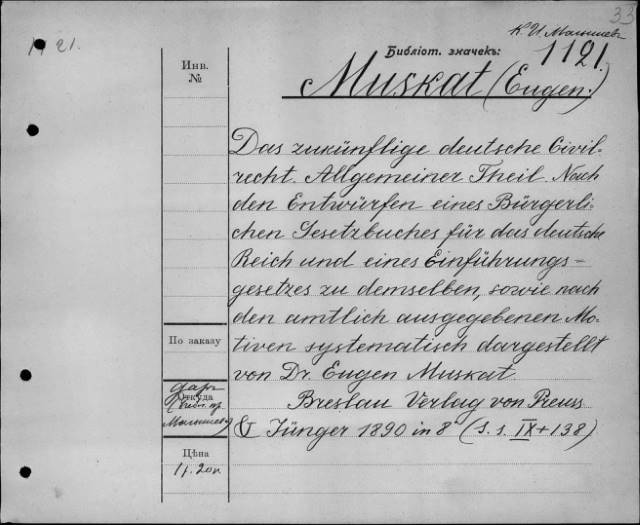 33
К. И. Малышев
1121.
Библіот. значекъ:
1121.
Muskat (Eugen.)
Инв.
№
Das zukünftige deutsche Civil-
recht. Allgemeiner Theil. Nach
den Entwürfen eines Bürgerli-
chen Gesetzbuches für das deutsche
Reich und eines Einführungs=
gesetzes zu demselben, sowie nach
den amtlich ausgegebenen Mo-
tiven systematisch dargestellt
von Dr. Eugen Muskat.
Breslau Verlag von Preuss
& Jünger 1890 in 8° (S. s. IX + 138)
По заказу
Откуда
даръ
Малышев
Цѣна